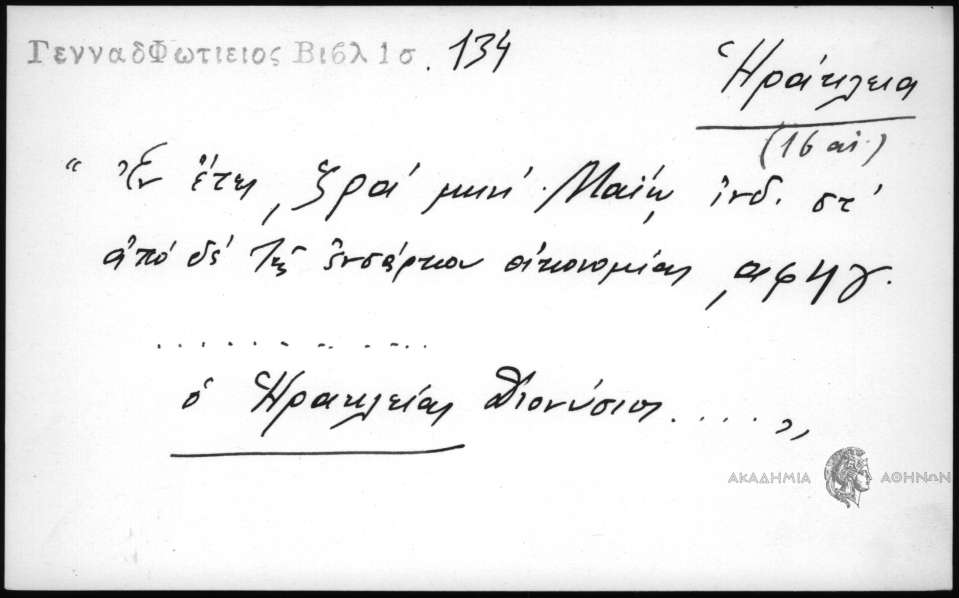 ΓενναδΦωτιειος Βιβλ 1σ. 134
Ἡράκλεια
(16 αἰ.)
“ Ἐν ἔτει ͵ζρα΄ μηνί Μαΐῳ ἰνδ. στ΄
ἀπό δέ τῆς ἐνσάρκου οἰκονομίας ͵αφηγ.
. . . . . . . . . . . .
ὁ Ἡρακλείας Διονύσιος . . . . . „
ΑΚΑΔΗΜΙΑ ΑΘΗΝΩΝ